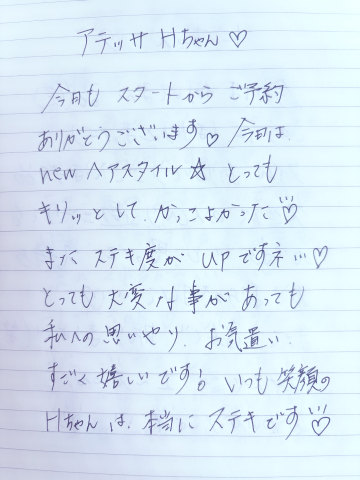 アテッサ Hちゃん♡
今日も スタートから ご予約
ありがとうございます♡ 今日は
new ヘアスタイル☆ とっても
キリッとして、かっこよかった!!♡
また ステキ度が UPですネ…♡
とっても 大変な事が あっても
私への 思いやり、お気遣い、
すごく 嬉しいです! いつも 笑顔の
Hちゃんは、本当に ステキです!!♡